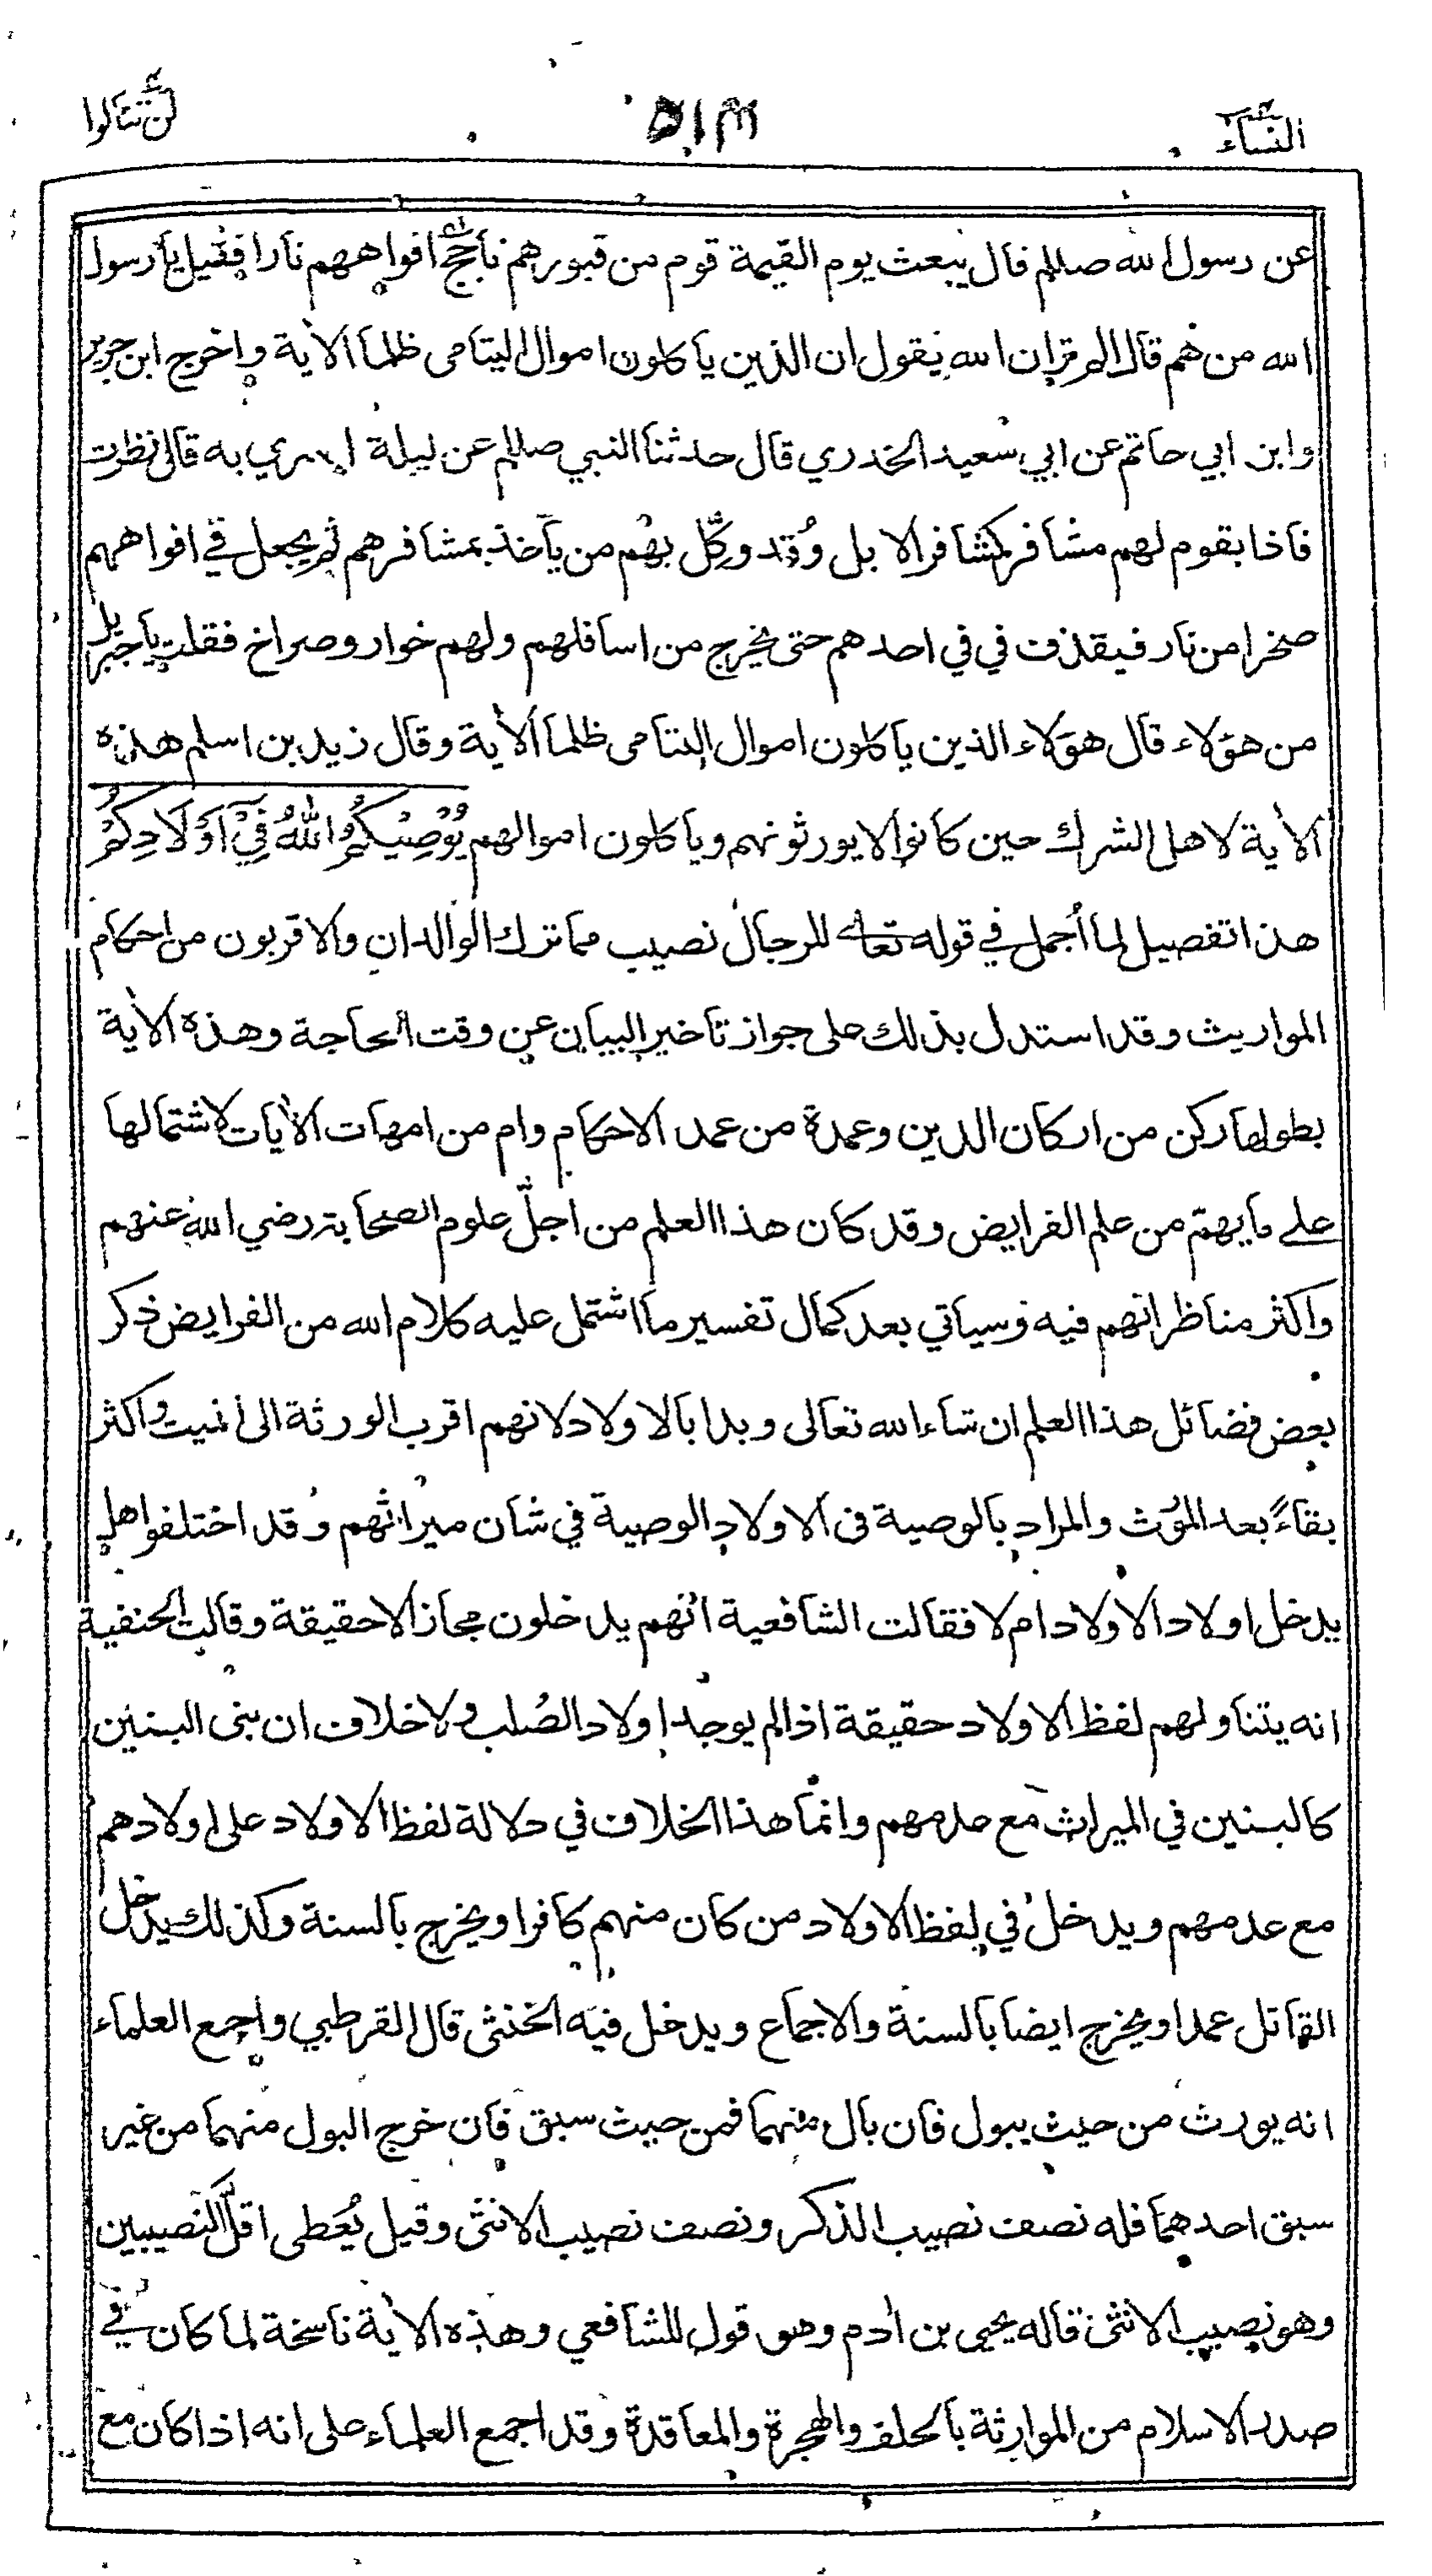 النساء ٥١٣ لن تنالوا
عن رسول الله صللم قال يبعث يوم القيمة قوم من قبورهم تأجج افواههم نارا فقيل يا رسول
الله من هم قال الم تر ان الله يقول ان الذين ياكلون اموال اليتامى ظلما الأية واخرج ابن جرير
وابن ابي حاتم عن ابي سعيد الخدري قال حدثنا النبي صللم عن ليلة اسري به قال نظرت
فاذا بقوم لهم مشافر كمشافر الابل وقد وكّل بهم من يأخذ بمشافرهم ثم يجعل في افواههم
صخرا من نار فيقذف في في احدهم حتى يخرج من اسافلهم ولهم خوار وصراخ فقلت يا جبريل
من هؤلاء قال هؤلاء الذين ياكلون اموال اليتامى ظلما الأية وقال زيد بن اسلم هذه
الأية لاهل الشرك حين كانوا لا يورثونهم وياكلون اموالهم يُوْصِيْكُمُ اللّٰهُ فِيْٓ اَوْلَادِكُمْ
هذا تفصيل لما أجمل في قوله تعالے للرجال نصيب مما ترك الوالدان والاقربون من احكام
المواريث وقد استدل بذلك على جواز تاخير البيان عن وقت الحاجة وهذه الأية
بطولها ركن من اركان الدين وعمدة من عمد الاحكام وام من امهات الأيات لاشتمالها
علے ما يهم من علم الفرايض وقد كان هذا العلم من اجلّ علوم الصحابة رضي الله عنهم
واكثر مناظراتهم فيه وسياتي بعد كمال تفسير ما اشتمل عليه كلام الله من الفرايض ذكر
بعض فضائل هذا العلم ان شاء الله تعالى وبدا بالاولاد لانهم اقرب الورثة الى الميت واكثر
بقاءً بعد المورث والمراد بالوصية فى الاولاد الوصية في شان ميراثهم وقد اختلفوا هل
يدخل اولاد الاولاد ام لا فقالت الشافعية انهم يدخلون مجازا لا حقيقة وقالت الحنفية
انه يتناولهم لفظ الاولاد حقيقة اذا لم يوجد اولاد الصُلب ولا خلاف ان بنى البنين
كالبنين في الميراث مع عدمهم وانما هذا الخلاف في دلالة لفظ الاولاد على اولادهم
مع عدمهم ويدخل في لفظ الاولاد من كان منهم كافرا ويخرج بالسنة وكذلك يدخل
القاتل عمدا ويخرج ايضا بالسنة والاجماع ويدخل فيه الخنثى قال القرطبي واجمع العلماء
انه يورث من حيث يبول فان بال منهما فمن حيث سبق فان خرج البول منهما من غير
سبق احدهما فله نصف نصيب الذكر ونصف نصيب الانثى وقيل يُعطى اقلّ النصيبين
وهو نصيب الانثى قاله يحيى بن أدم وهو قول للشافعي وهذه الأية ناسخة لما كان في
صدر الاسلام من الموارثة بالحلف والهجرة والمعاقدة وقد اجمع العلماء على انه اذا كان مع